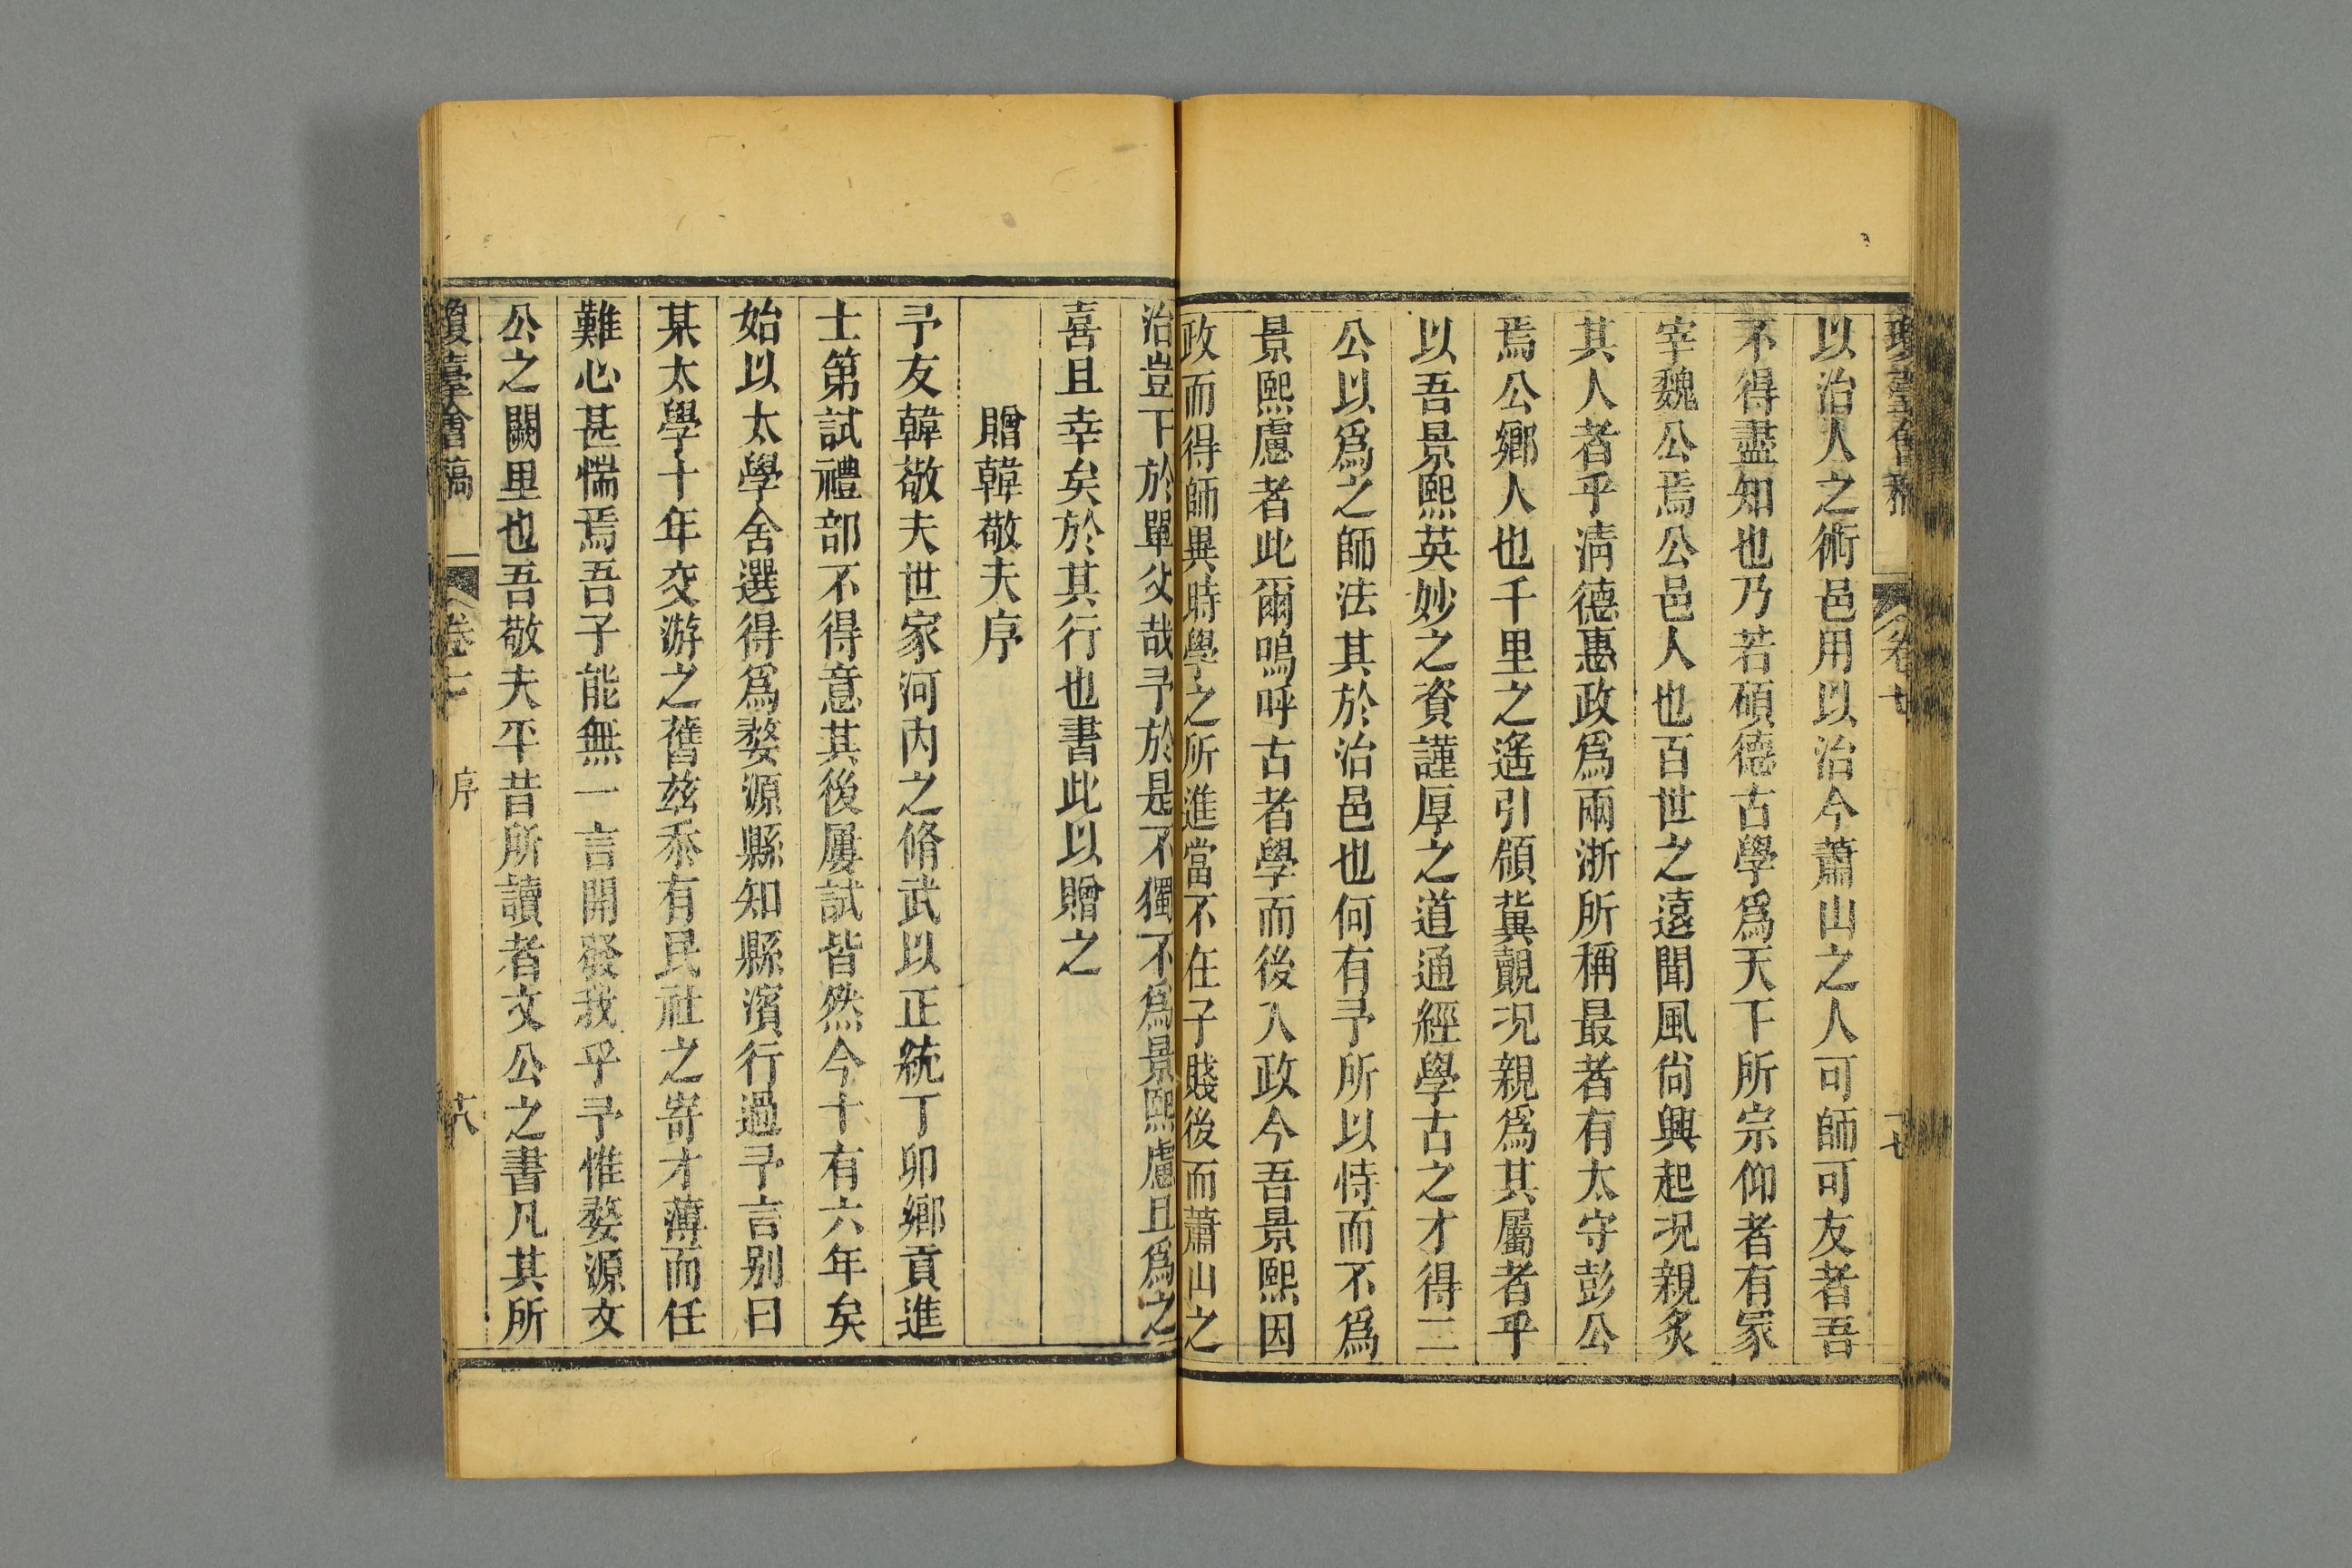 以治人之術邑用以治今蕭山之人可師可友者吾
不得盡知也乃若碩德古學爲天下所宗仰者有冢
宰魏公焉公邑人也百世之遠聞風尙興起况親炙
其人者乎淸德惠政爲兩浙所稱最者有太守彭公
焉公鄉人也千里之遙引領冀覿况親爲其屬者乎
以吾景熙英妙之資謹厚之道通經學古之才得二
公以爲之師法其於治邑也何有予所以恃而不爲
景熙慮者此爾嗚呼古者學而後入政今吾景熙因
政而得師異時學之所進當不在子賤後而蕭山之
治豈下於單父哉予於是不獨不爲景熙慮且爲之
喜且幸矣於其行也書此以贈之
贈韓敬夫序
予友韓敬夫世家河内之脩武以正統丁卯鄉貢進
士第試禮部不得意其後屢試皆然今十有六年矣
始以太學舍選得爲婺源縣知縣濱行過予言别曰
某太學十年交游之舊兹忝有民社之寄才薄而任
難心甚惴焉吾子能無一言開發我乎予惟婺源文
公之闕里也吾敬夫平昔所讀者文公之書凡其所
瓊臺會稿 卷十 序 十八